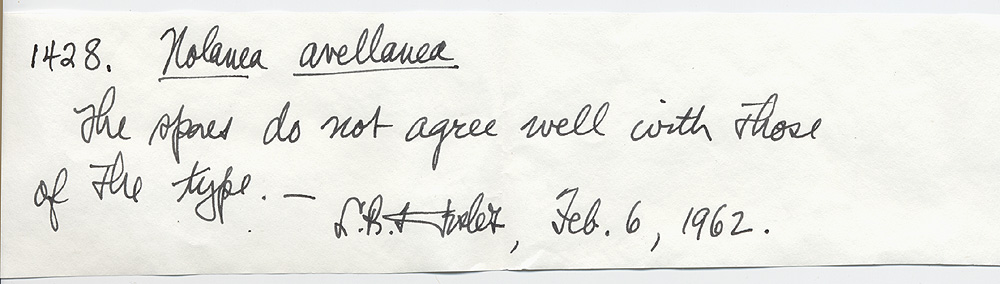 1428. Nolanea avellanea
The spores do not agree well with those
of the type. —
L.B., Feb. 6, 1962.